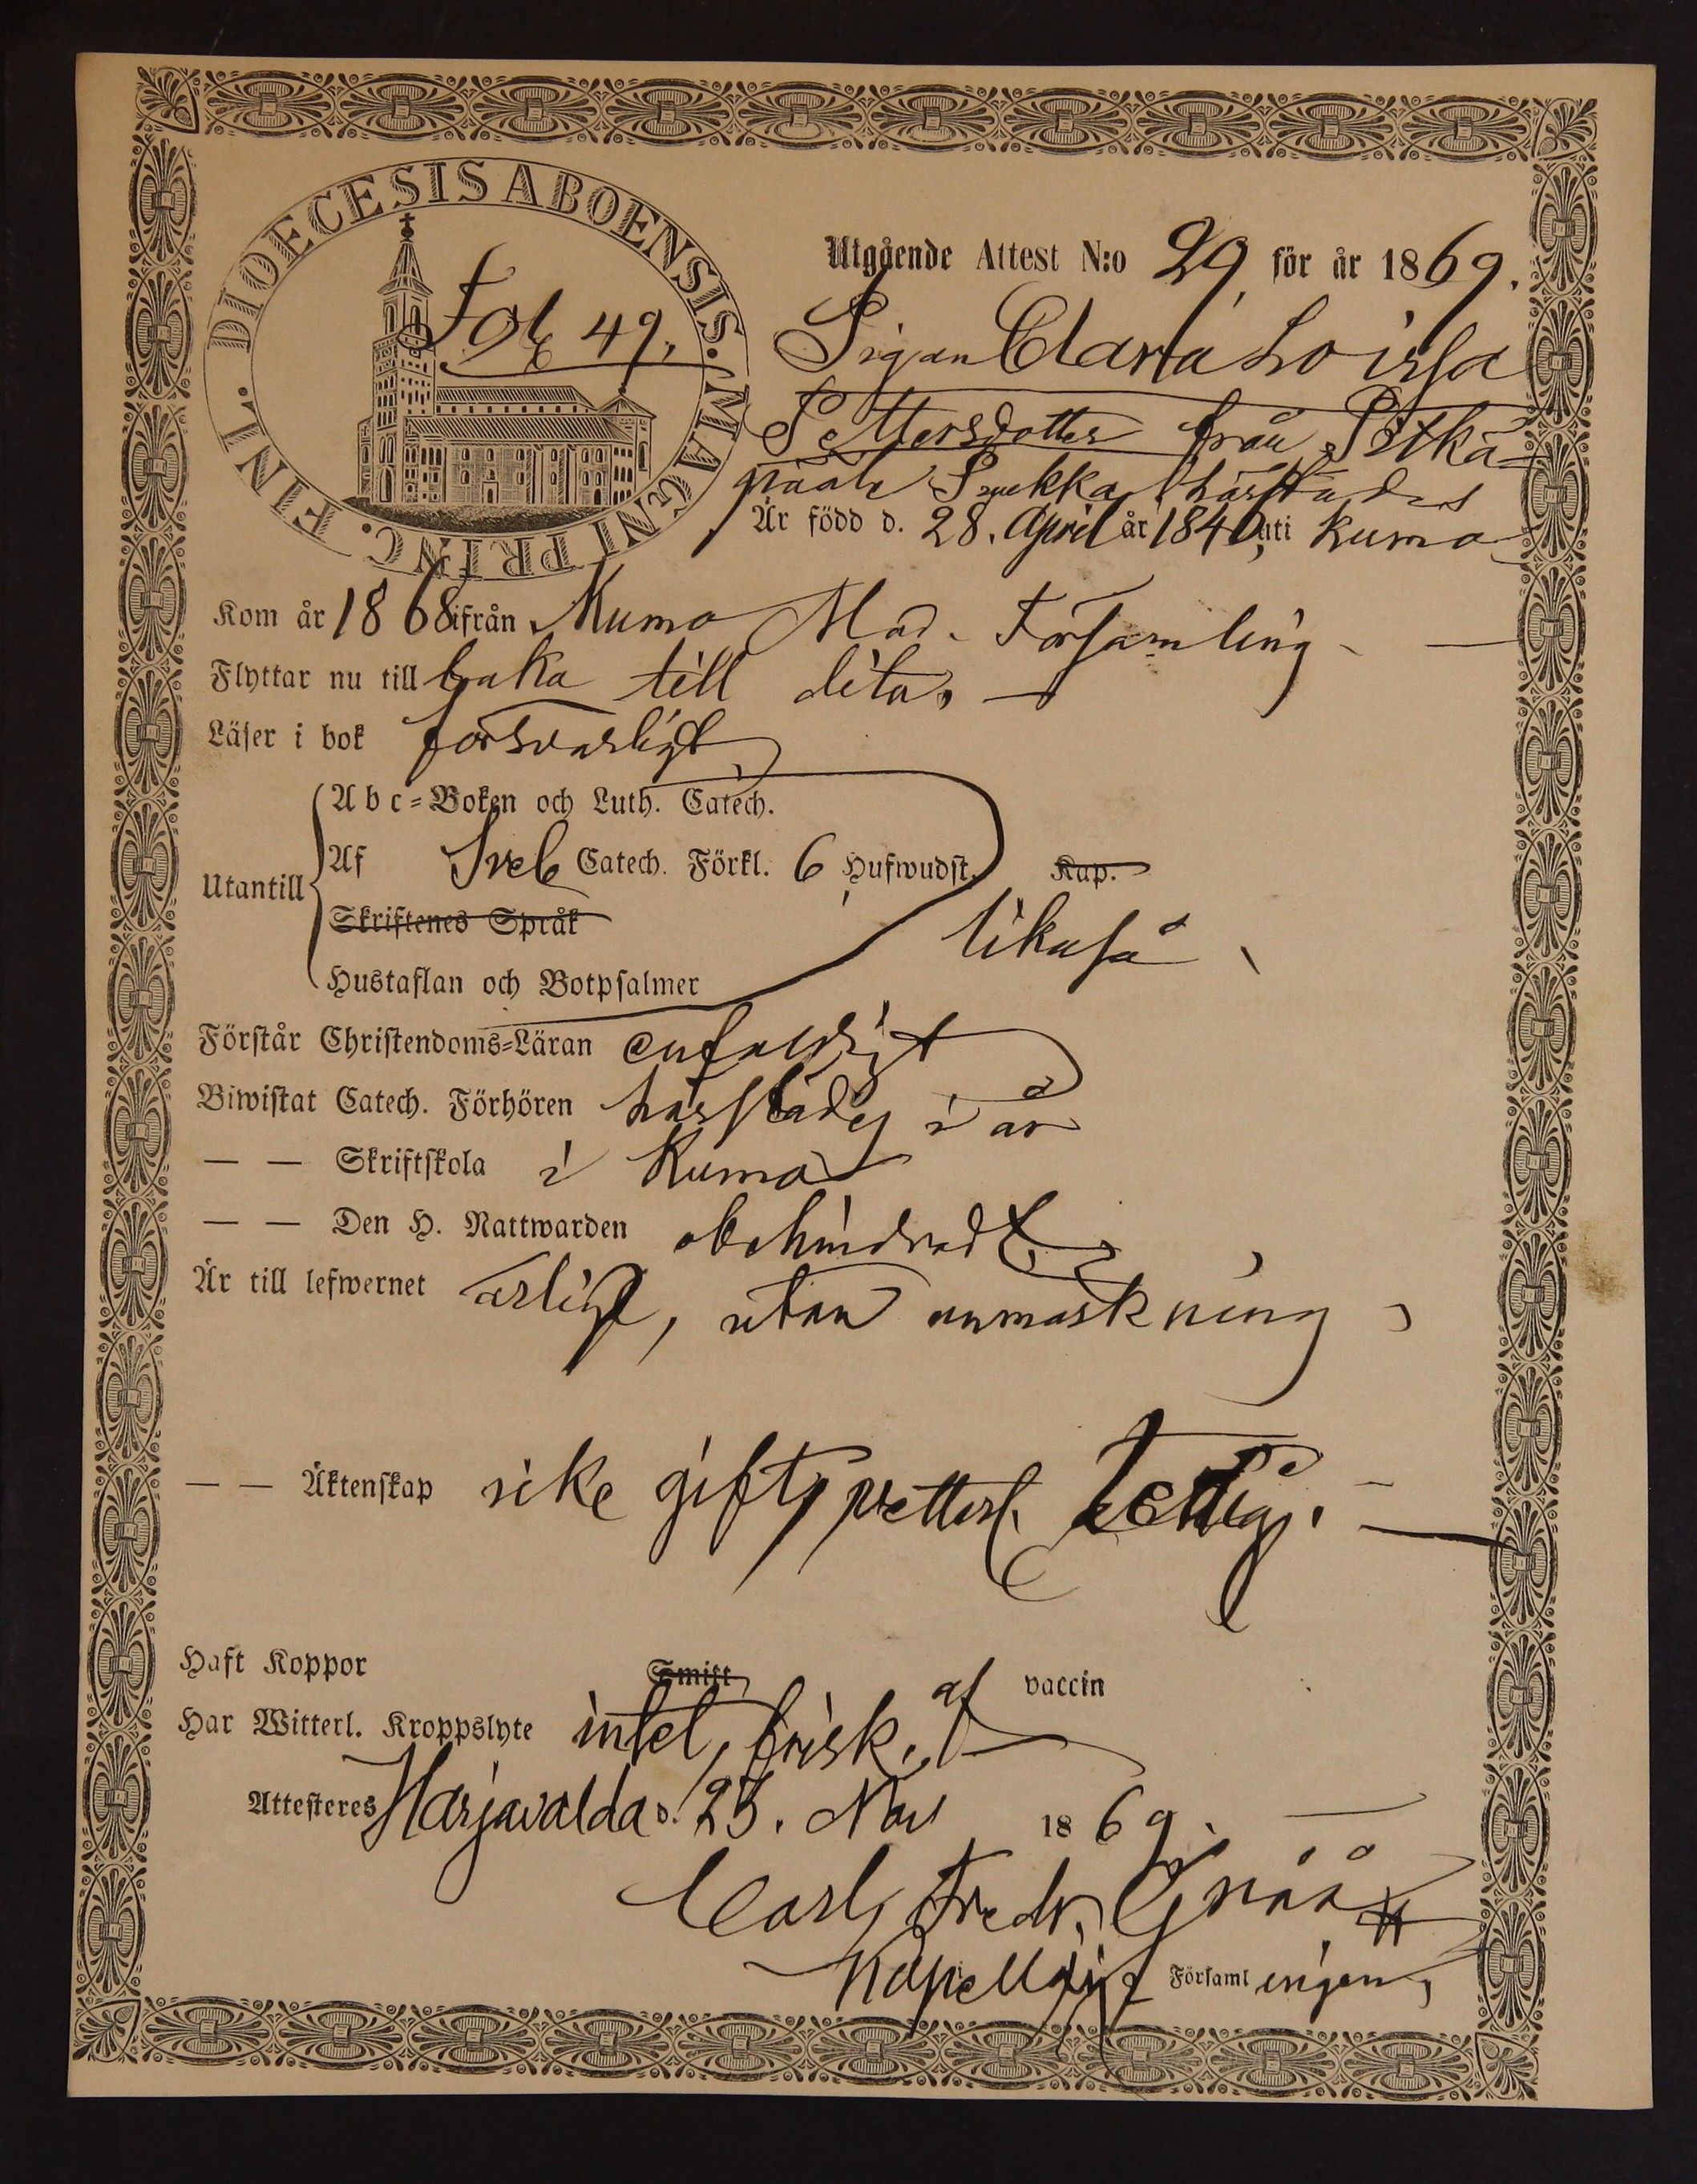 DIOECESIS ABOENSIS. MAGNI PRINC. FINL.
Fol 49.
Utgående Attest N:o 29 för år 1869.
Pigan Clara Lovisa
Pettersdotter från Pitkä
päälä härstädes
Är född d. 28. April år 1840, uti Kumo
Kom år 1868 ifrån Kumo Mod. Församling
Flyttar nu till baka till dito.
Läser i bok försvarligt
Utantill
Abc-Boken och Luth. Catech.
Af Sveb Catech. Förkl. 6 Hufwudst. Kap.
Skriftenes Språk
likaså
Hustaflan och Botpsalmer
Förstår Christendoms-Läran enfaldigt
Biwistat Catech. Förhören härstädes i år
— — Skriftskola i Kumo
— — Den H. Nattwarden obehindradt
Är till lefwernet ärligt, utan anmärkning
— — Äktenskap icke gift, vetterl. ledig.
Haft Koppor Smitt af vaccin
Har Witterl. Kroppslyte intet, frisk.
Attesteres Harjavalda d. 23. Nov 1869.
Carl Fredr. Grää
Kapellan i Församlingen